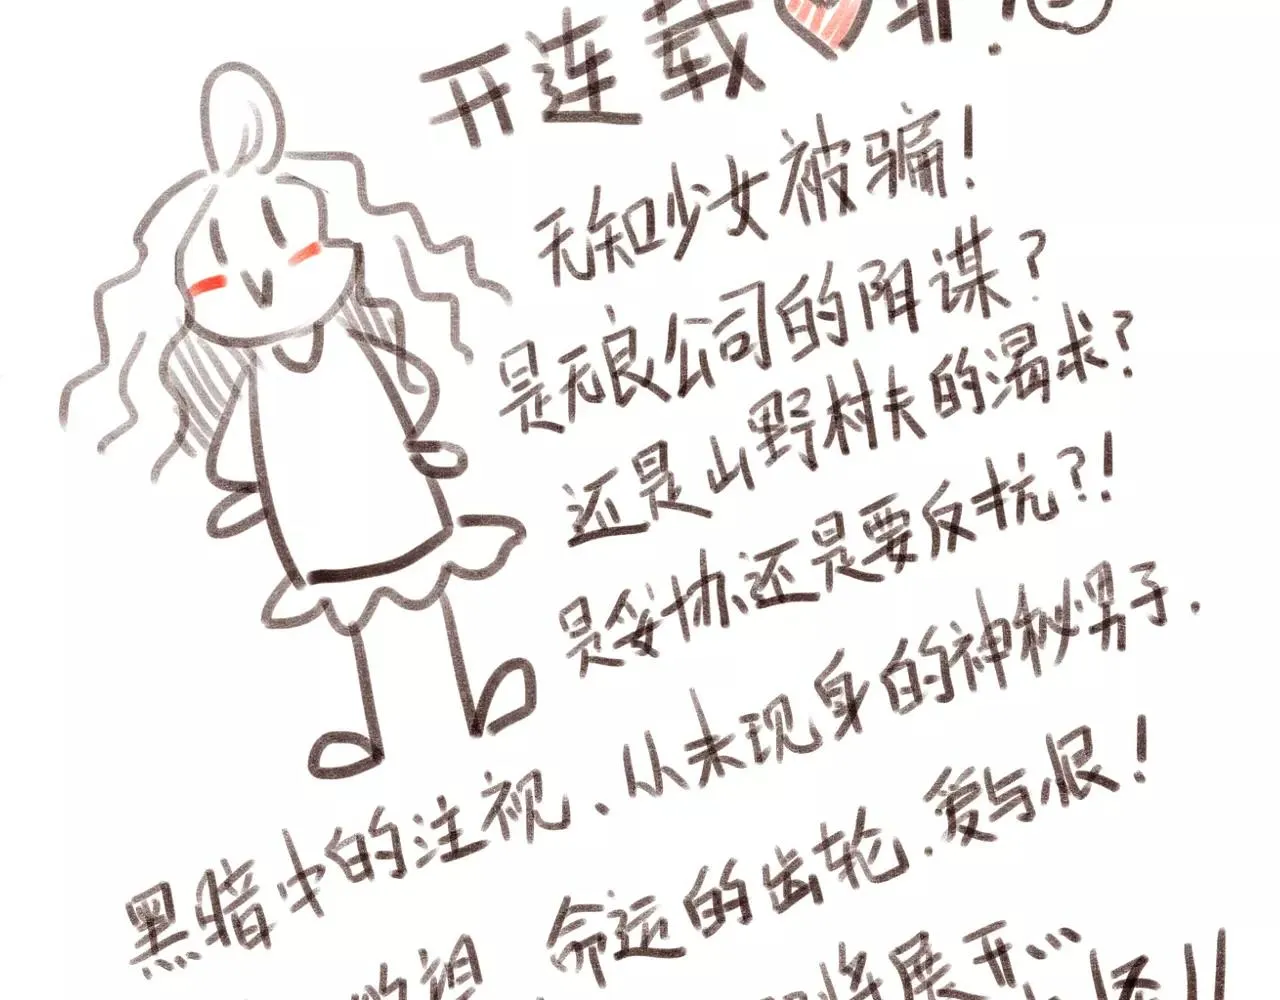 开连载
无知少女被骗!
是无良公司的阳谋?
还是山野村夫的渴求?
是妥协还是要反抗?!
黑暗中的注视、从未现身的神秘男子.
命运的齿轮.爱与恨!
将展开...